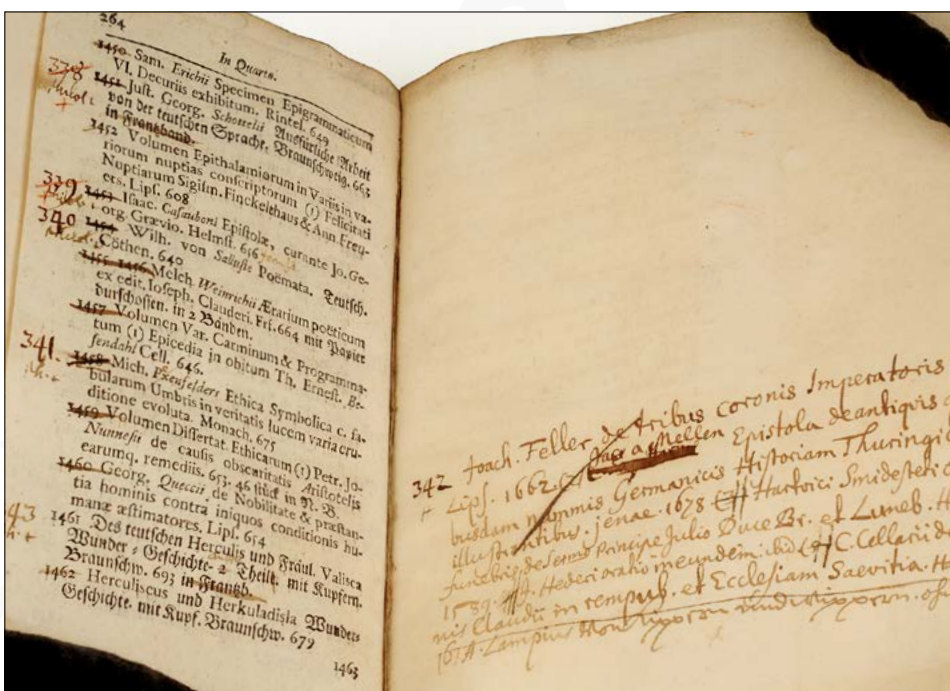 264
In Quarto.
1450 Sam. Erichii Specimen Epigrammaticum
VI. Decuriis exhibitum. Rintel. 649
378
1451 Just. Georg. Schottelii Ausfürliche Arbeit
von der teutschen Sprache. Braunschweig. 663
in Frantzband.
1452 Volumen Epithalamiorum in Variis in va-
riorum nuptias conscriptorum (1) Felicitati
Nuptiarum Sigism. Finckelthaus & Ann. Freu-
ers. Lips. 608
339
1453 Isaac. Casauboni Epistolæ, curante Jo. Ge-
org. Grævio. Helmst. 656
340
1454 Wilh. von Salluste Poëmata. Teutsch.
Cöthen. 640
1455 1456 Melch. Weinrichii Ærarium poëticum
ex edit. Joseph. Clauderi. Frf. 664 mit Papier
durschossen. in 2 Bänden.
1457 Volumen Var. Carminum & Programma-
tum (1) Epicedia in obitum Th. Ernest. Be-
sendahl Cell. 646.
341.
1458 Mich. Pexenfelders Ethica Symbolica c. fa-
bularum Umbris in veritatis lucem varia eru-
ditione evoluta. Monach. 675
1459 Volumen Dissertat. Ethicarum (1) Petr. Jo.
Nunnesii de causis obscuritatis Aristotelis
earumq. remediis. 653. 46 stück in N. B.
1460 Georg. Queccii de Nobilitate & præstan-
tia hominis contra iniquos conditionis hu-
manæ æstimatores. Lips. 654
43
1461 Des teutschen Herculis und Fräul. Valisca
Wunder-Geschichte 2 Theile. mit Kupfern.
Braunschw. 693 in Frantzb.
1462 Herculiscus und Herkuladisla Wunder-
Geschichte. mit Kupf. Braunschw. 679
1463
342 Joach. Feller de tribus coronis Imperatoris
Lips. 1662. Jac. a Mellen Epistola de antiquis
busdam nummis Germanicis Historiam Thuringi
illustrantibus. jenae. 1678 Hartvici Smidesteri
funebris de Principe Julio Duce Br. et Luneb.
1589. Hederi oratio in eundem. ibid C. Cellarii de
nis Claudii in rempub. et Ecclesiam Saevitia.